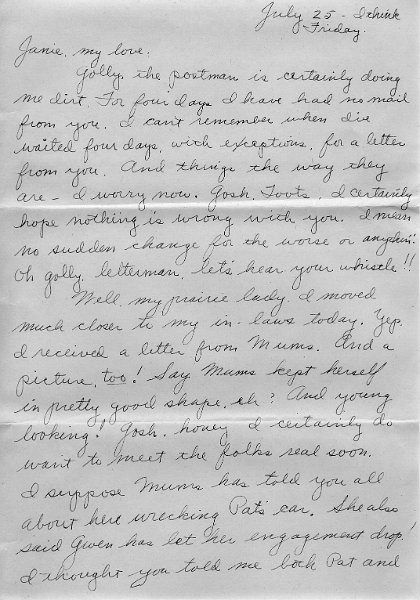 July 25 - I think
Friday.
Janie, my love.
Golly, the postman is certainly doing
me dirt. For four days I have had no mail
from you. I can't remember when I've
waited four days, with exceptions, for a letter
from you. And things the way they
are - I worry now. Gosh, Toots, I certainly
hope nothing is wrong with you. I mean
no sudden change for the worse or anythin'.
Oh golly, letterman, let's hear your whistle!!
Well, my prairie lady, I moved
much closer to my in-laws today. Yep.
I received a letter from Mums. And a
picture, too! Say, Mums kept herself
in pretty good shape, eh? And young
looking! Gosh, honey I certainly do
want to meet the folks real soon.
I suppose Mums has told you all
about here wrecking Pat's car. She also
said Gwen has let her engagement drop!
I thought you told me both Pat and